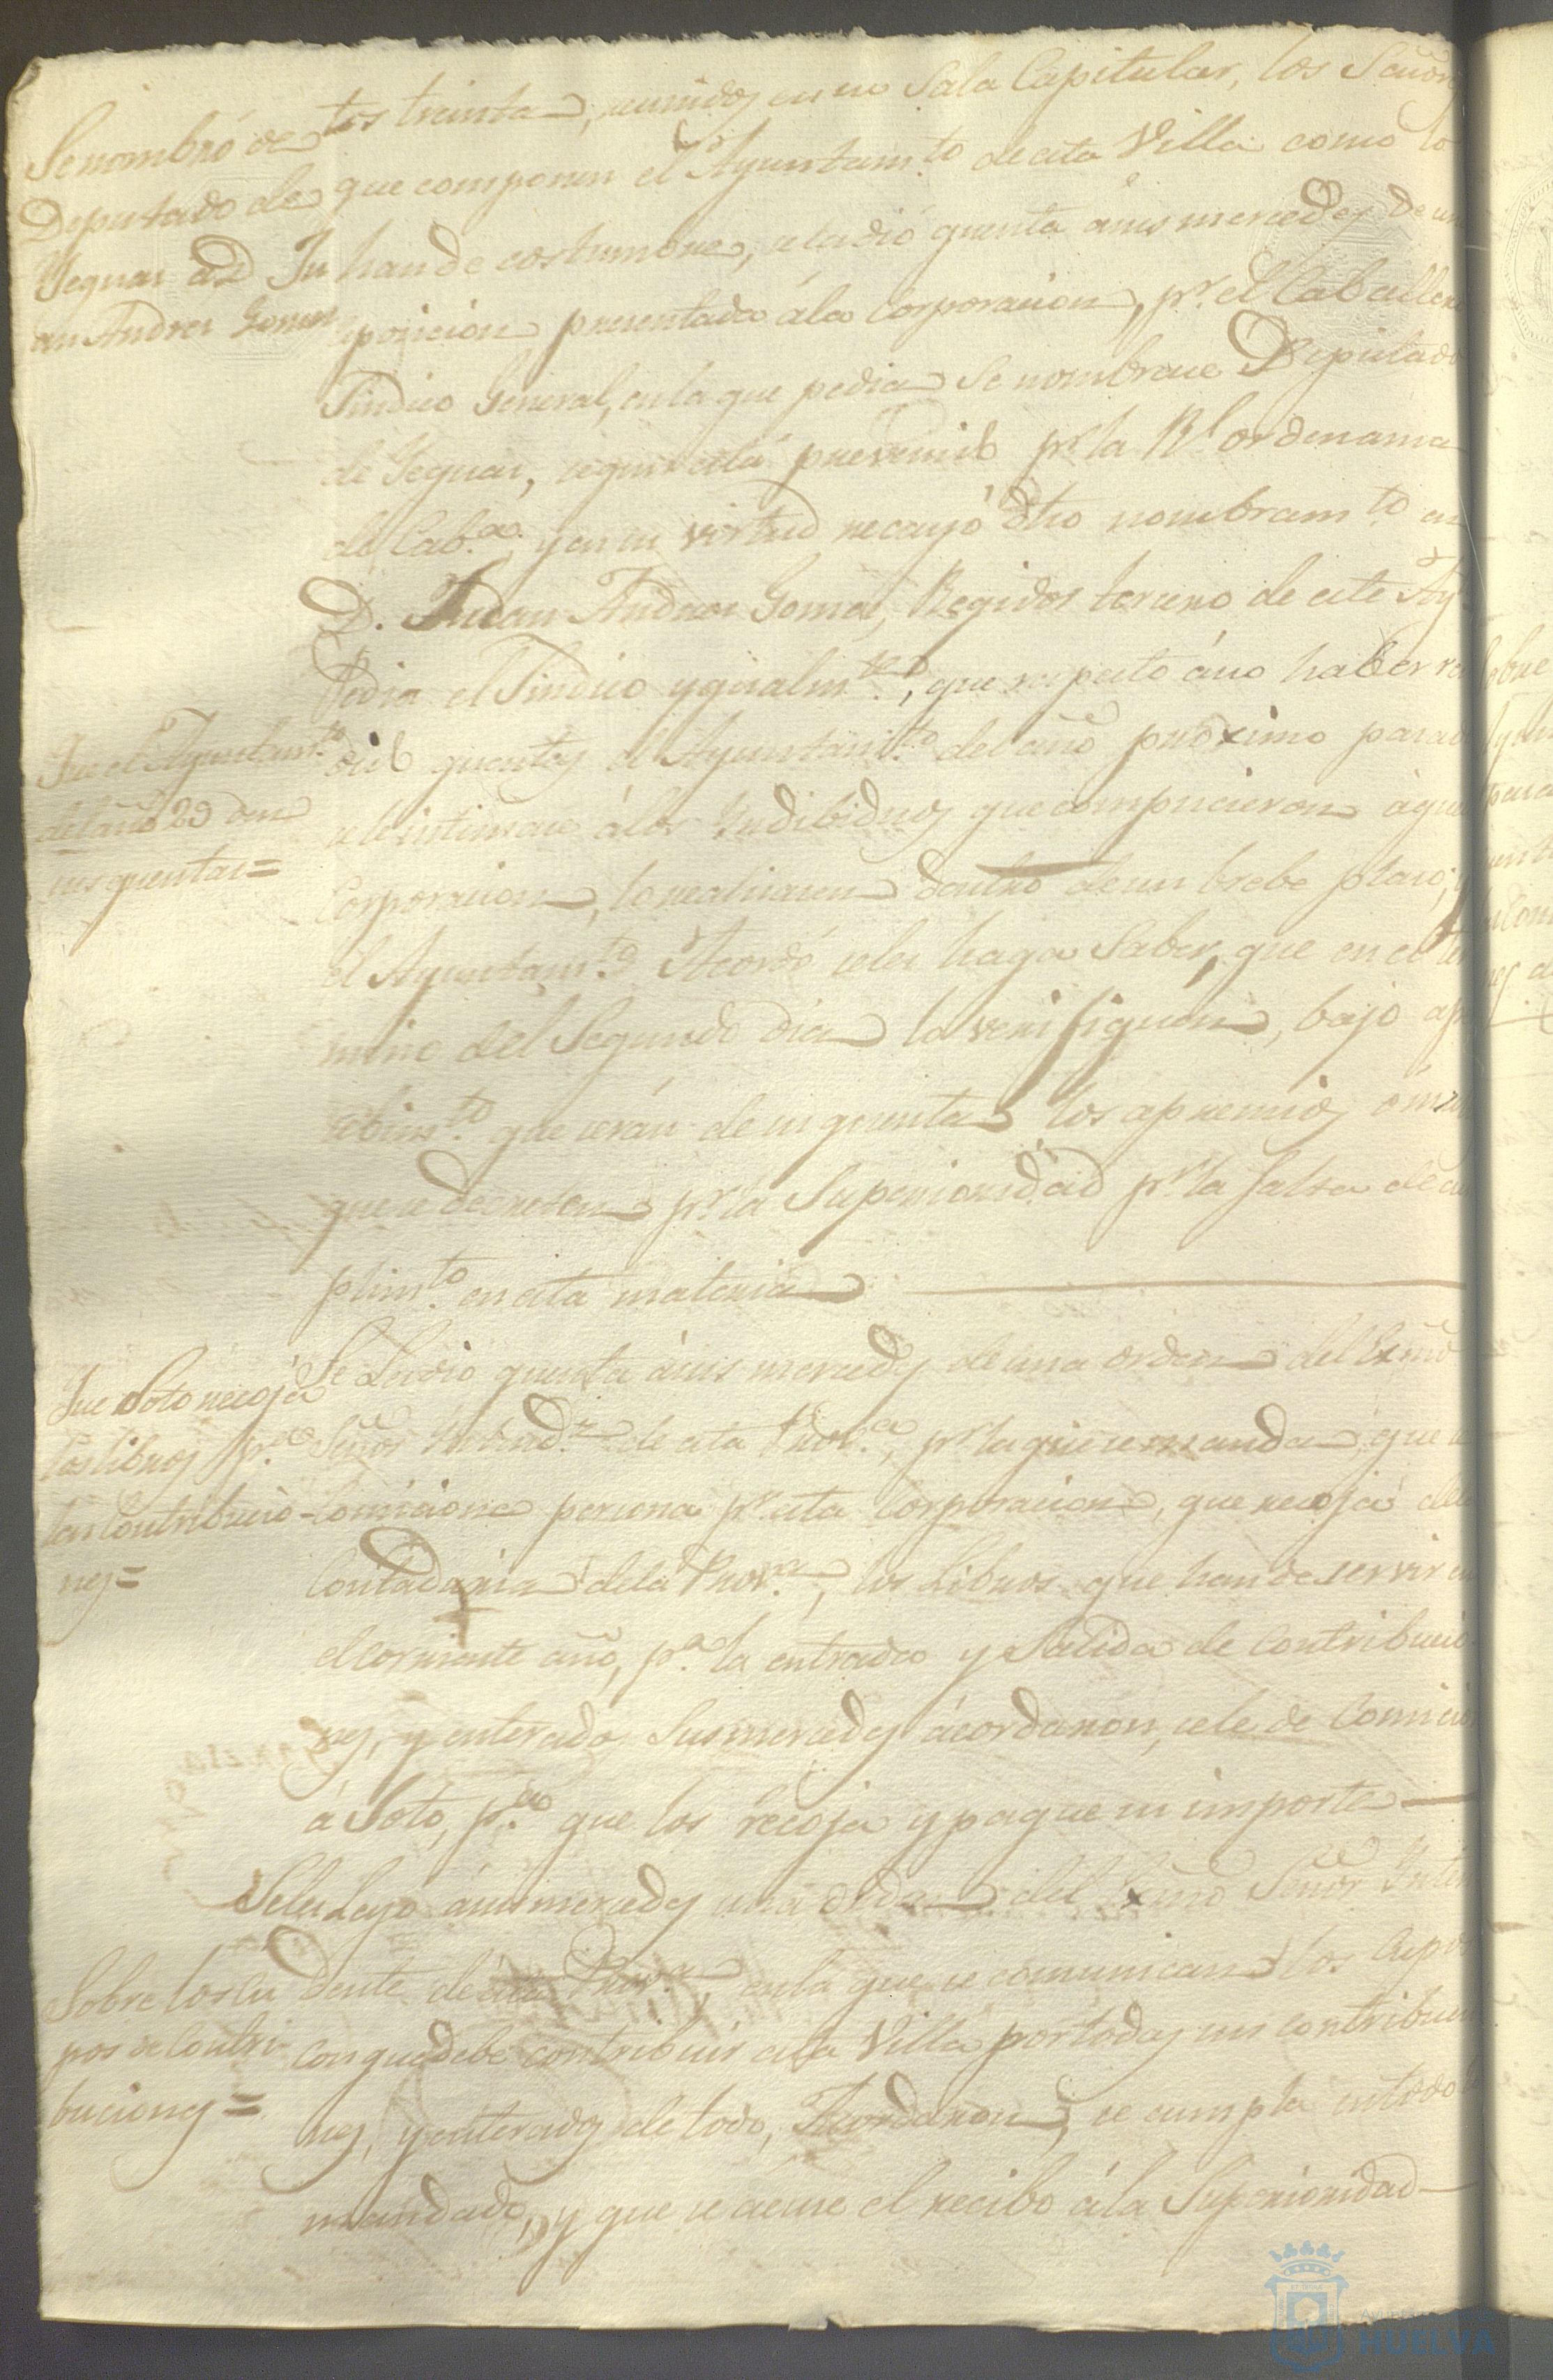 Se nombró de
Deputado de
Yeguas a D. Ju
an Andres Gomez
tos treinta, reunidos en su Sala Capitular, los Señores
que componen el Ayuntam.to de esta Villa como lo
han de costumbre, se la dió quenta á sus mercedes de un
posicion presentada á la Corporacion, p.r el Caballero
Sindico General, en la que pedia se nombrase Deputado
de Yeguas, segun está prevenido p.r la Rl ordenanza
de Cab.a y en su virtud recayó dho nombram.to en
D. Juan Andres Gomez, Regidor tercero de este Ay
Pedia el Sindico ygualm.te, que respecto á no haber ren
Que el Ayuntam.to
del año 29 den
sus quentas=
dido quentas el Ayuntam.to del año proximo pasado
se le intimase á los Yndibiduos que compucieron aque
Corporacion, lo realizasen dentro de un brebe plazo, y
el Ayuntam.to Acordó se les haga Saber, que en el ter
mino del Segundo dia lo verifiquen, bajo ap
cebim.to que serán de su quenta los apremios
que se decreten p.r la Superioridad p.r la falta de cu
plim.to en esta materia
Que Soto recoja
los libros p.a
las Contribucio-
nes=
Se Le dio quenta á sus mercedes de una orden del Exmo
Señor Intend.te de esta Prov.a, p.r la que se manda, que se
Comicione persona p.r esta Corporacion, que recoja de la
Contaduria de la Prov.a, los Libros que han de servir en
el corriente año, p.a la entrada y Salida de Contribucio
nes, y enterados Sus mercedes acordaron, se le de Comicion
á Soto, p.a que los recoja y pague su importe
Se les Leyó á sus mercedes una orden del Exmo Señor Inten
Sobre los cu
pos de Contri
buciones=
dente de esta Prov.a, en la que se comunican los Cupos
con que debe contribuir esta Villa por todas sus contribucio
nes, y enterados de todo, Acordaron, se cumpla en todo lo
mandado, y que se acuse el recibo á la Superioridad
HUELVA